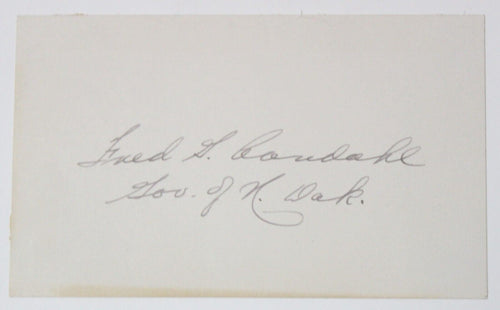 Fred G. Aandahl
Gov. of N. Dak.